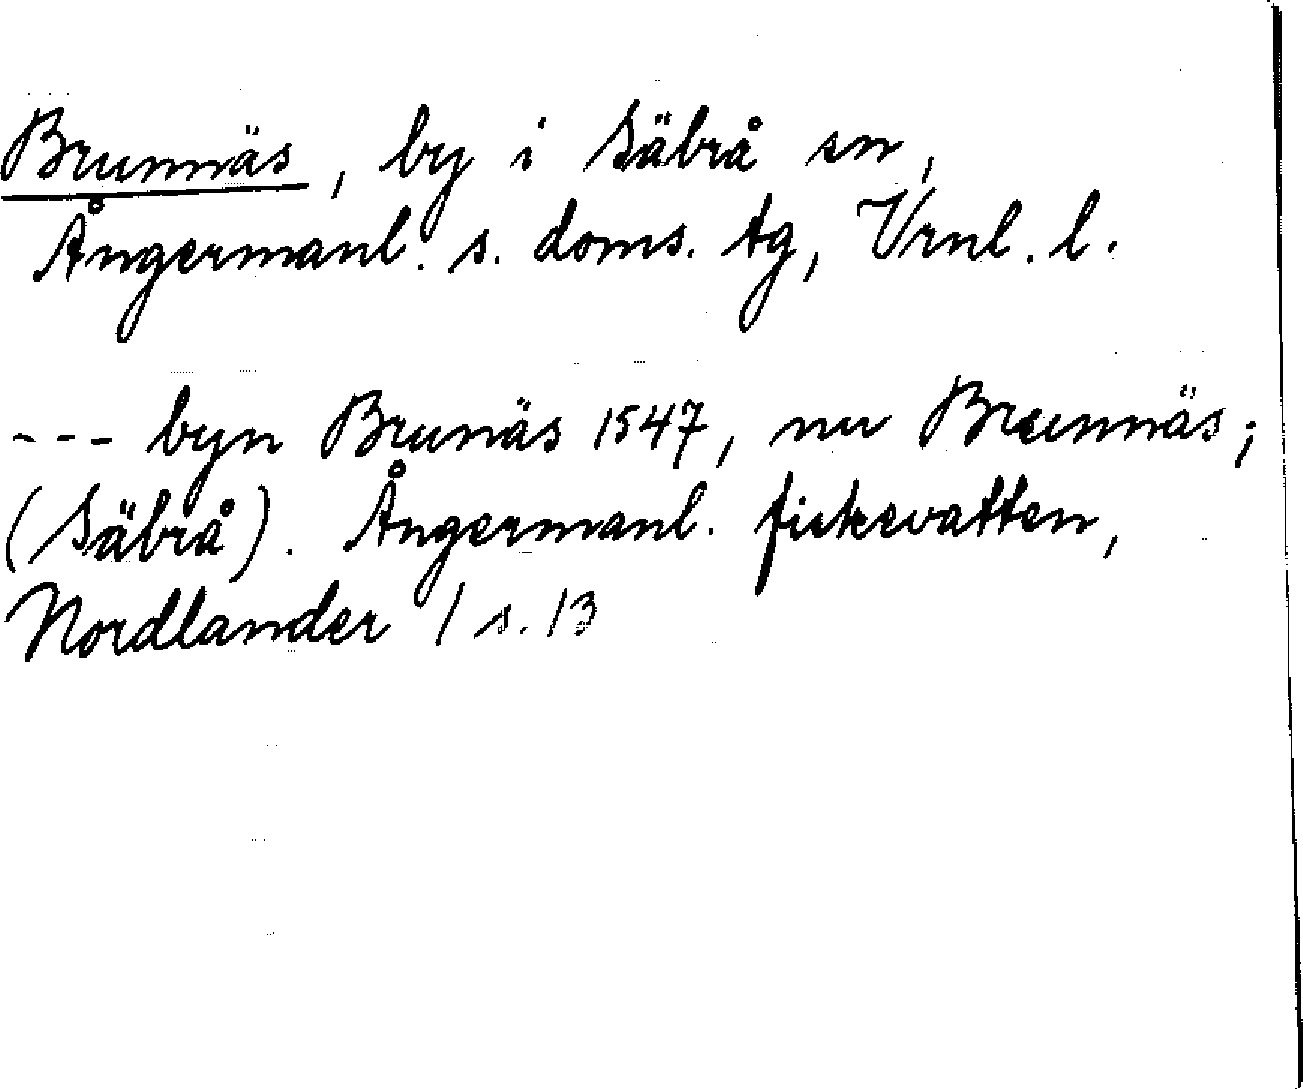 Brunnäs, by i Säbrå sn,
Ångermanl. s. doms. tg, Vrnl. l.
--- byn Brunäs 1547, nu Brunnäs;
(Säbrå). Ångermanl. fiskevatten,
Nordlander 1 s. 13